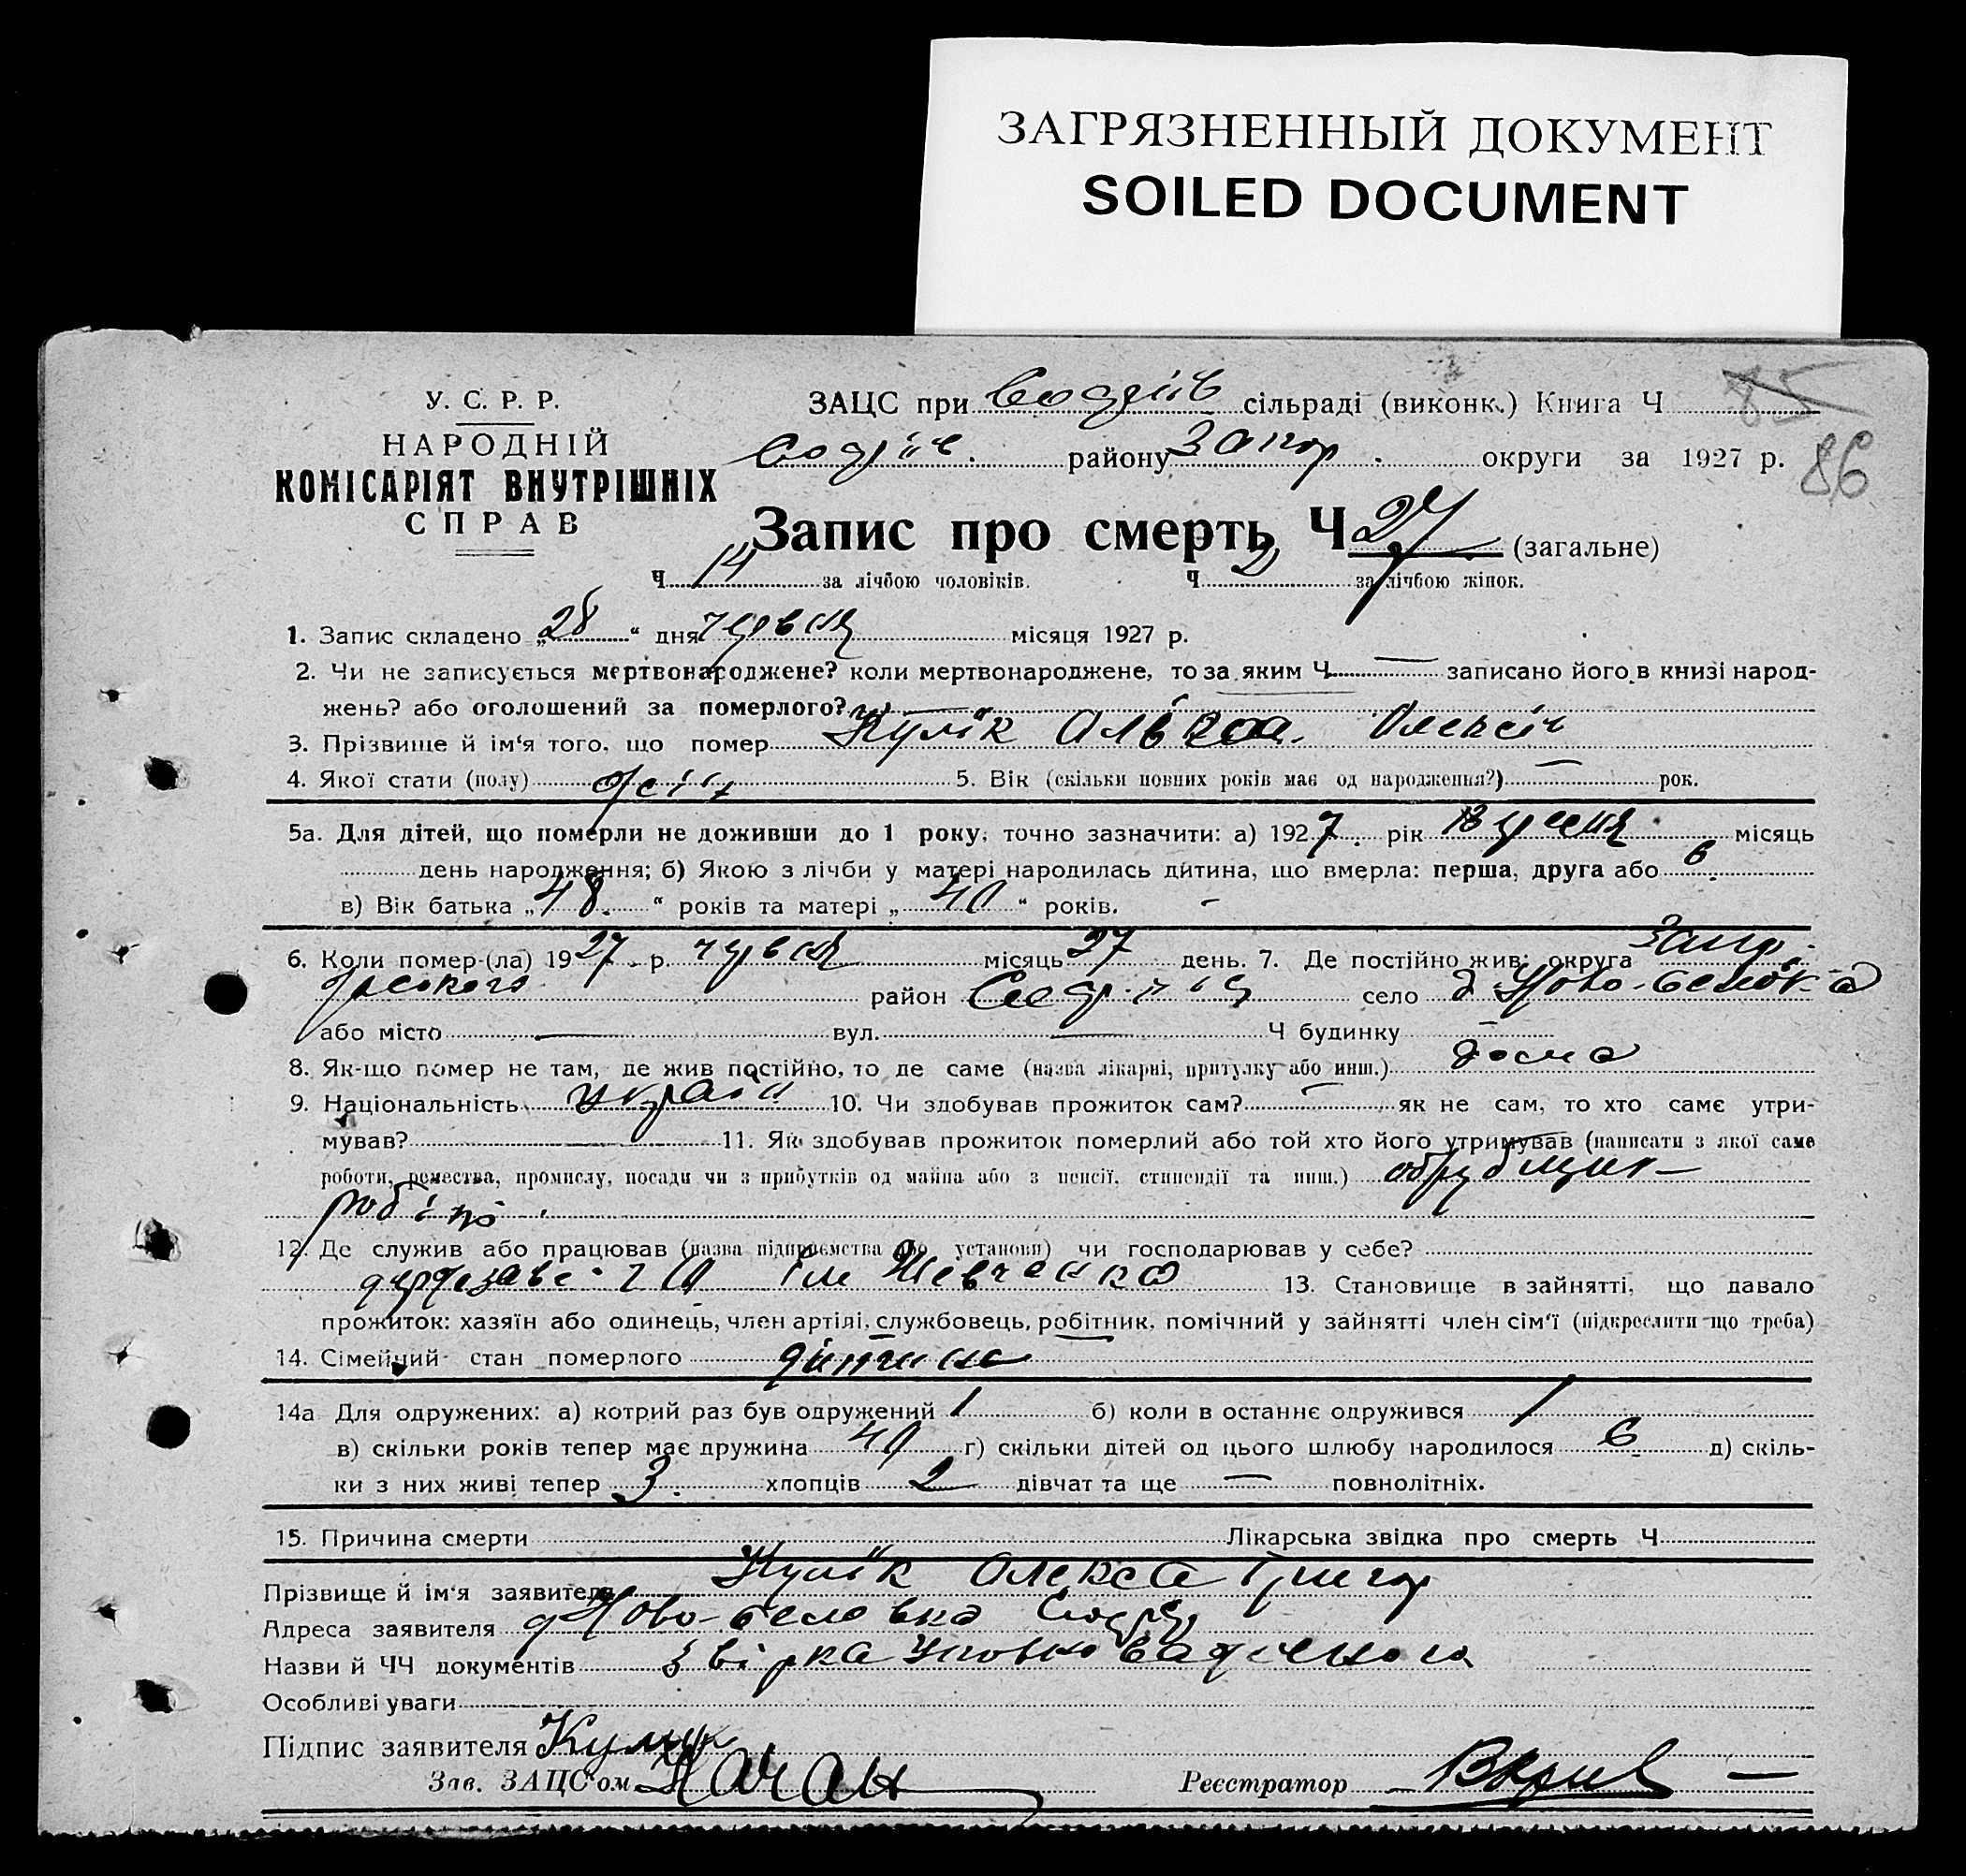 ЗАГРЯЗНЕННЫЙ ДОКУМЕНТ
SOILED DOCUMENT
У. С. Р. Р.
НАРОДНІЙ
КОМІСАРІЯТ ВНУТРІШНІХ
СПРАВ
ЗАЦС при сільраді (виконк.) Книга Ч 85
району Запор. округи за 1927 р. 86
Запис про смерть Ч 27 (загальне)
Ч 14 за лічбою чоловіків. Ч за лічбою жінок.
1. Запис складено „28“ дня червня місяця 1927 р.
2. Чи не записується мертвонароджене? коли мертвонароджене, то за яким Ч — записано його в книзі народ-
жень? або оголошений за померлого?
3. Прізвище й ім'я того, що помер Кулік Олексіїв
4. Якої стати (полу) жін 5. Вік (скільки повних років має од народження?) — рок.
5а. Для дітей, що померли не доживши до 1 року, точно зазначити: а) 1927 рік місяць
день народження; б) Якою з лічби у матері народилась дитина, що вмерла: перша, друга або 6
в) Вік батька „48“ років та матері „40“ років.
6. Коли помер (ла) 1927 р. червня місяць 27 день. 7. Де постійно жив: округа Запор.
район село
або місто — вул. — Ч будинку —
8. Як-що помер не там, де жив постійно, то де саме (назва лікарні, притулку або инш.) дома
9. Національність україн 10. Чи здобував прожиток сам? — як не сам, то хто саме утри-
мував? — 11. Як здобував прожиток померлий або той хто його утримував (написати з якої саме
роботи, ремества, промислу, посади чи з прибутків од майна або з пенсії, стипендії та инш.)
12. Де служив або працював (назва підприємства або установи) чи господарював у себе?
ім Шевченко 13. Становище в зайнятті, що давало
прожиток: хазяїн або одинець, член артілі, службовець, робітник, помічний у зайнятті член сім'ї (підкреслити що треба)
14. Сімейний стан померлого дитина
14а Для одружених: а) котрий раз був одружений 1 б) коли в останнє одружився 1
в) скільки років тепер має дружина 40 г) скільки дітей од цього шлюбу народилося 6 д) скіль-
ки з них живі тепер 3 хлопців 2 дівчат та ще — повнолітніх.
15. Причина смерти Лікарська звідка про смерть Ч
Прізвище й ім'я заявителя Кулік Олекса Григор
Адреса заявителя
Назви й ЧЧ документів
Особливі уваги
Підпис заявителя Кулик
Зав. ЗАЦС'ом Реєстратор